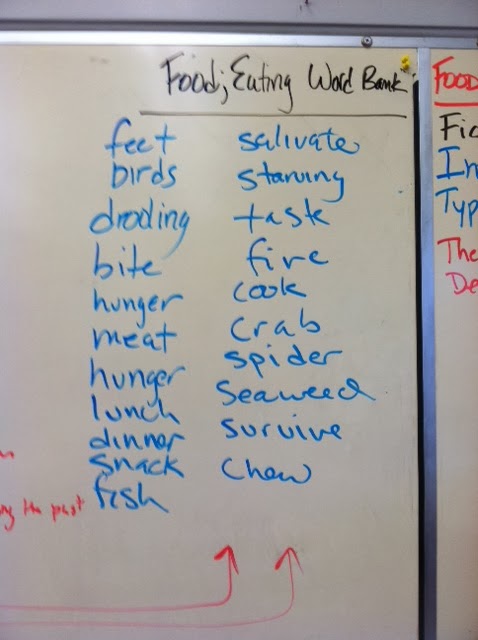 Food; Eating Word Bank
feet
birds
drooling
bite
hunger
meat
hunger
lunch
dinner
snack
fish
salivate
starving
taste
fire
cook
crab
spider
seaweed
survive
chew
the past
FOOD
Fic
In
Typ
The
De